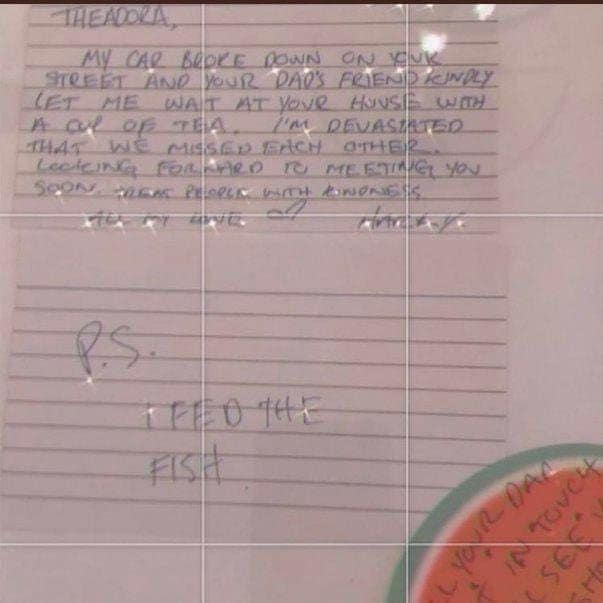 THEADORA,
MY CAR BROKE DOWN ON YOUR
STREET AND YOUR DAD'S FRIEND KINDLY
LET ME WAIT AT YOUR HOUSE WITH
A CUP OF TEA. I'M DEVASTATED
THAT WE MISSED EACH OTHER.
LOOKING FORWARD TO MEETING YOU
SOON. TREAT PEOPLE WITH KINDNESS
ALL MY LOVE
P.S.
I FED THE
FISH
YOUR DAD
IN TOUCH
SEE